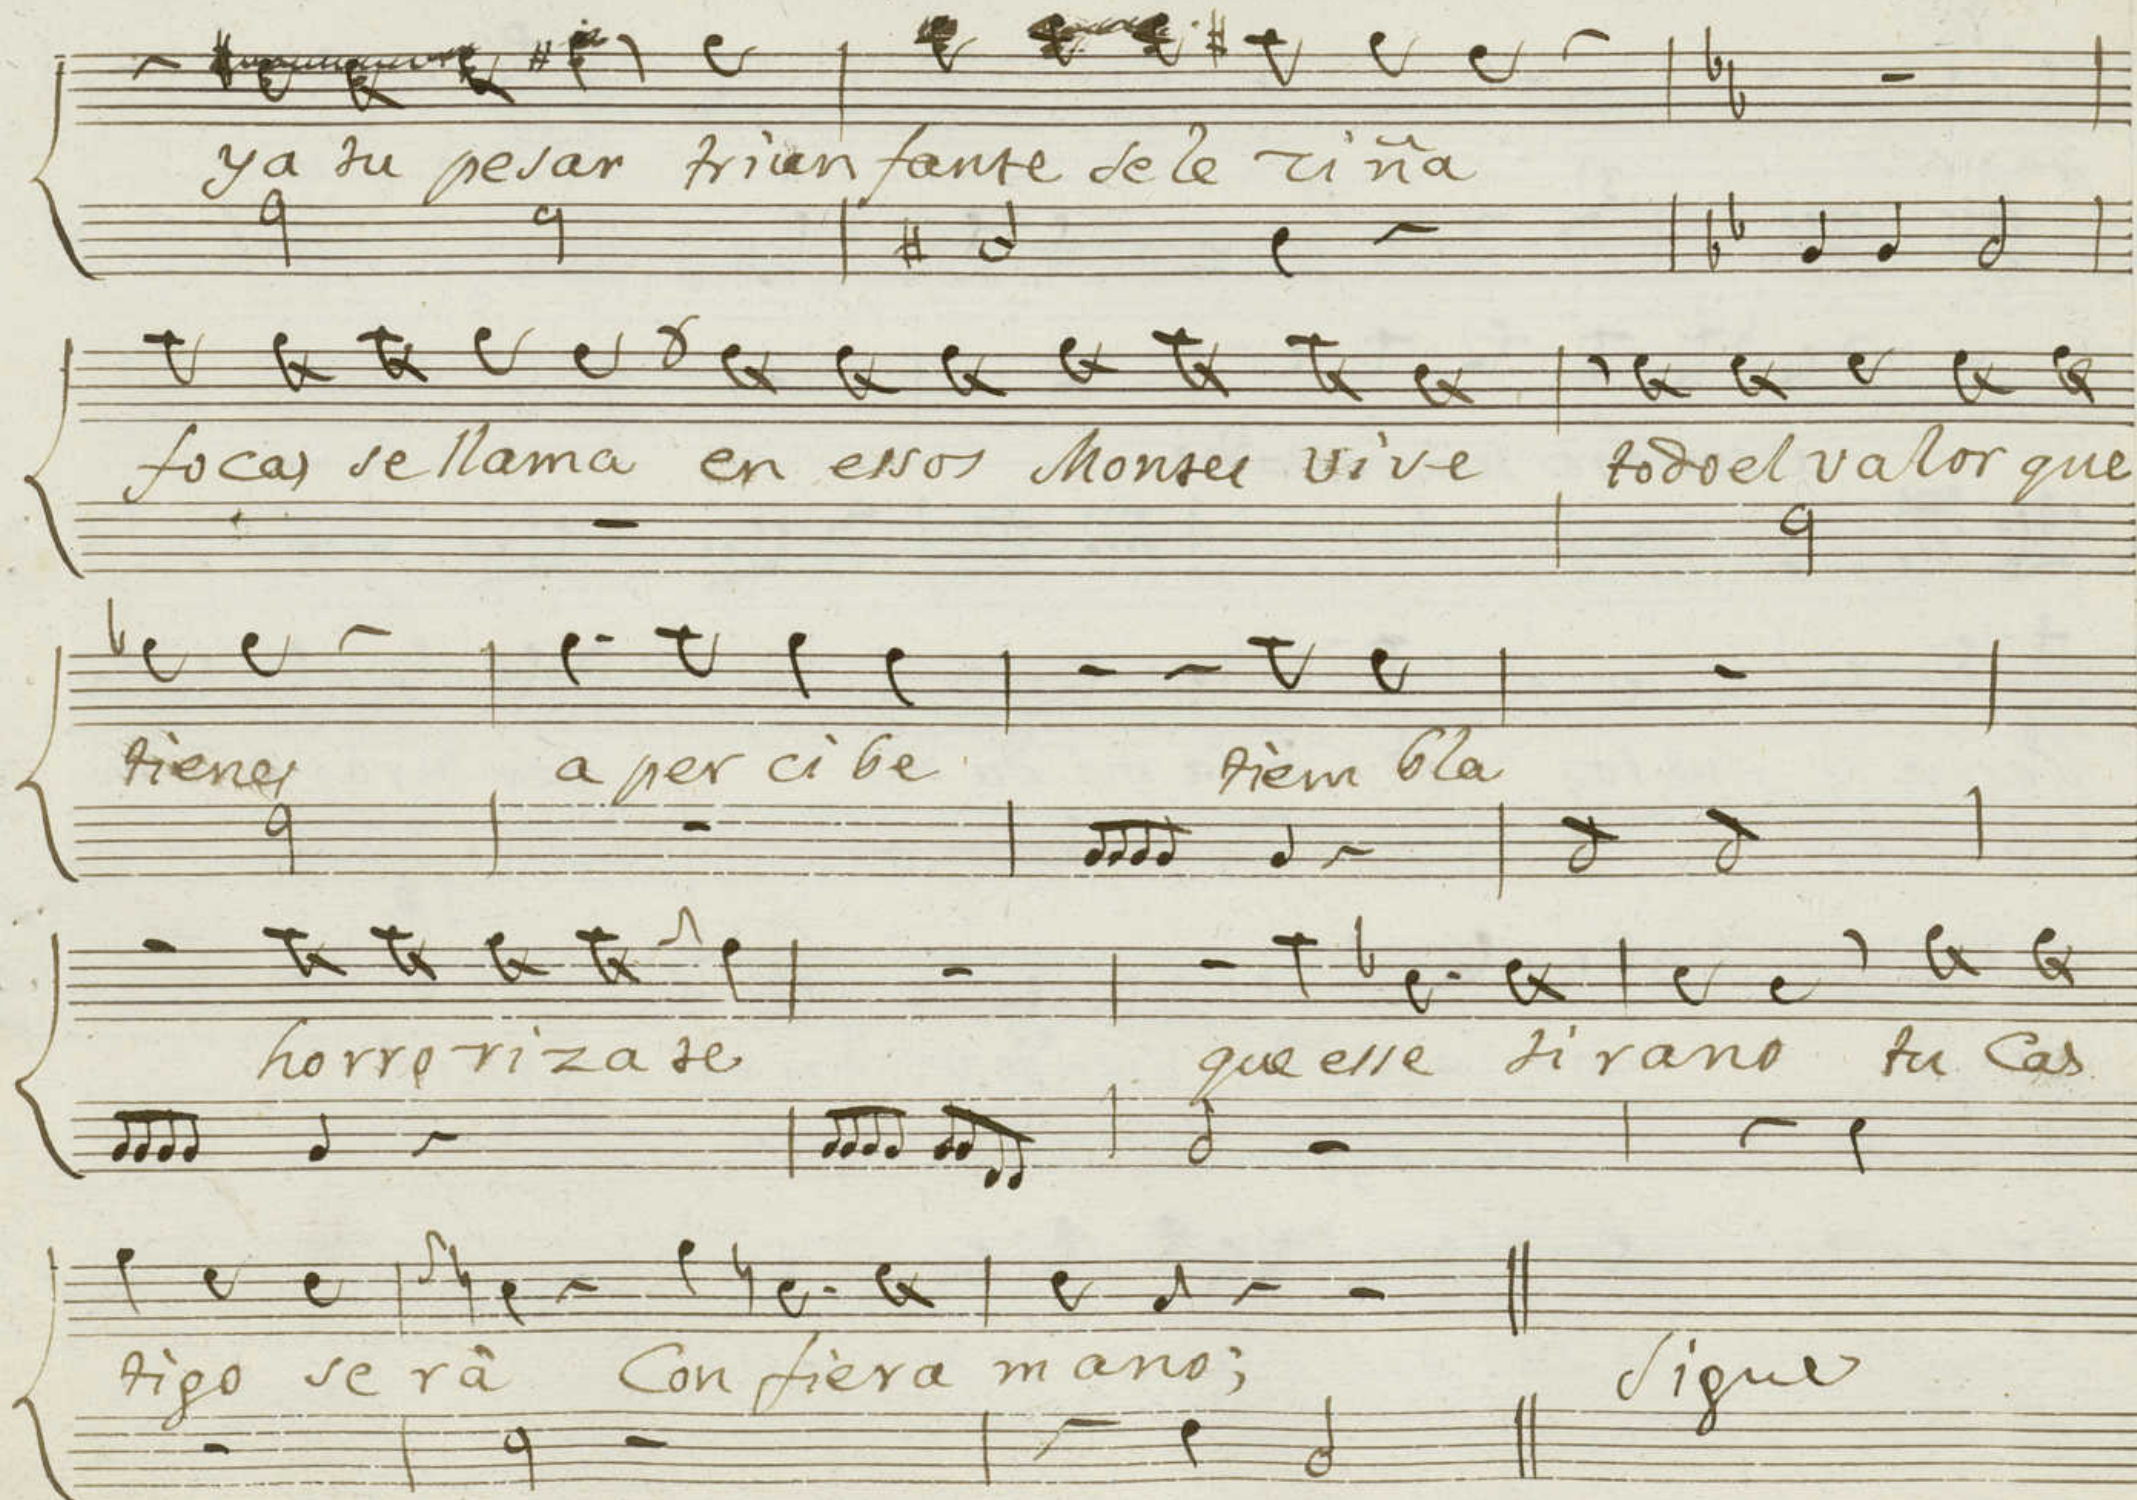 ya tu pesar triunfante sele ciña
focas se llama en essos Montes vive todo el valor que
tienes apercibe tiembla
horrorizate que esse tirano tu Cas
tigo serâ Con fiera mano;
Sigue